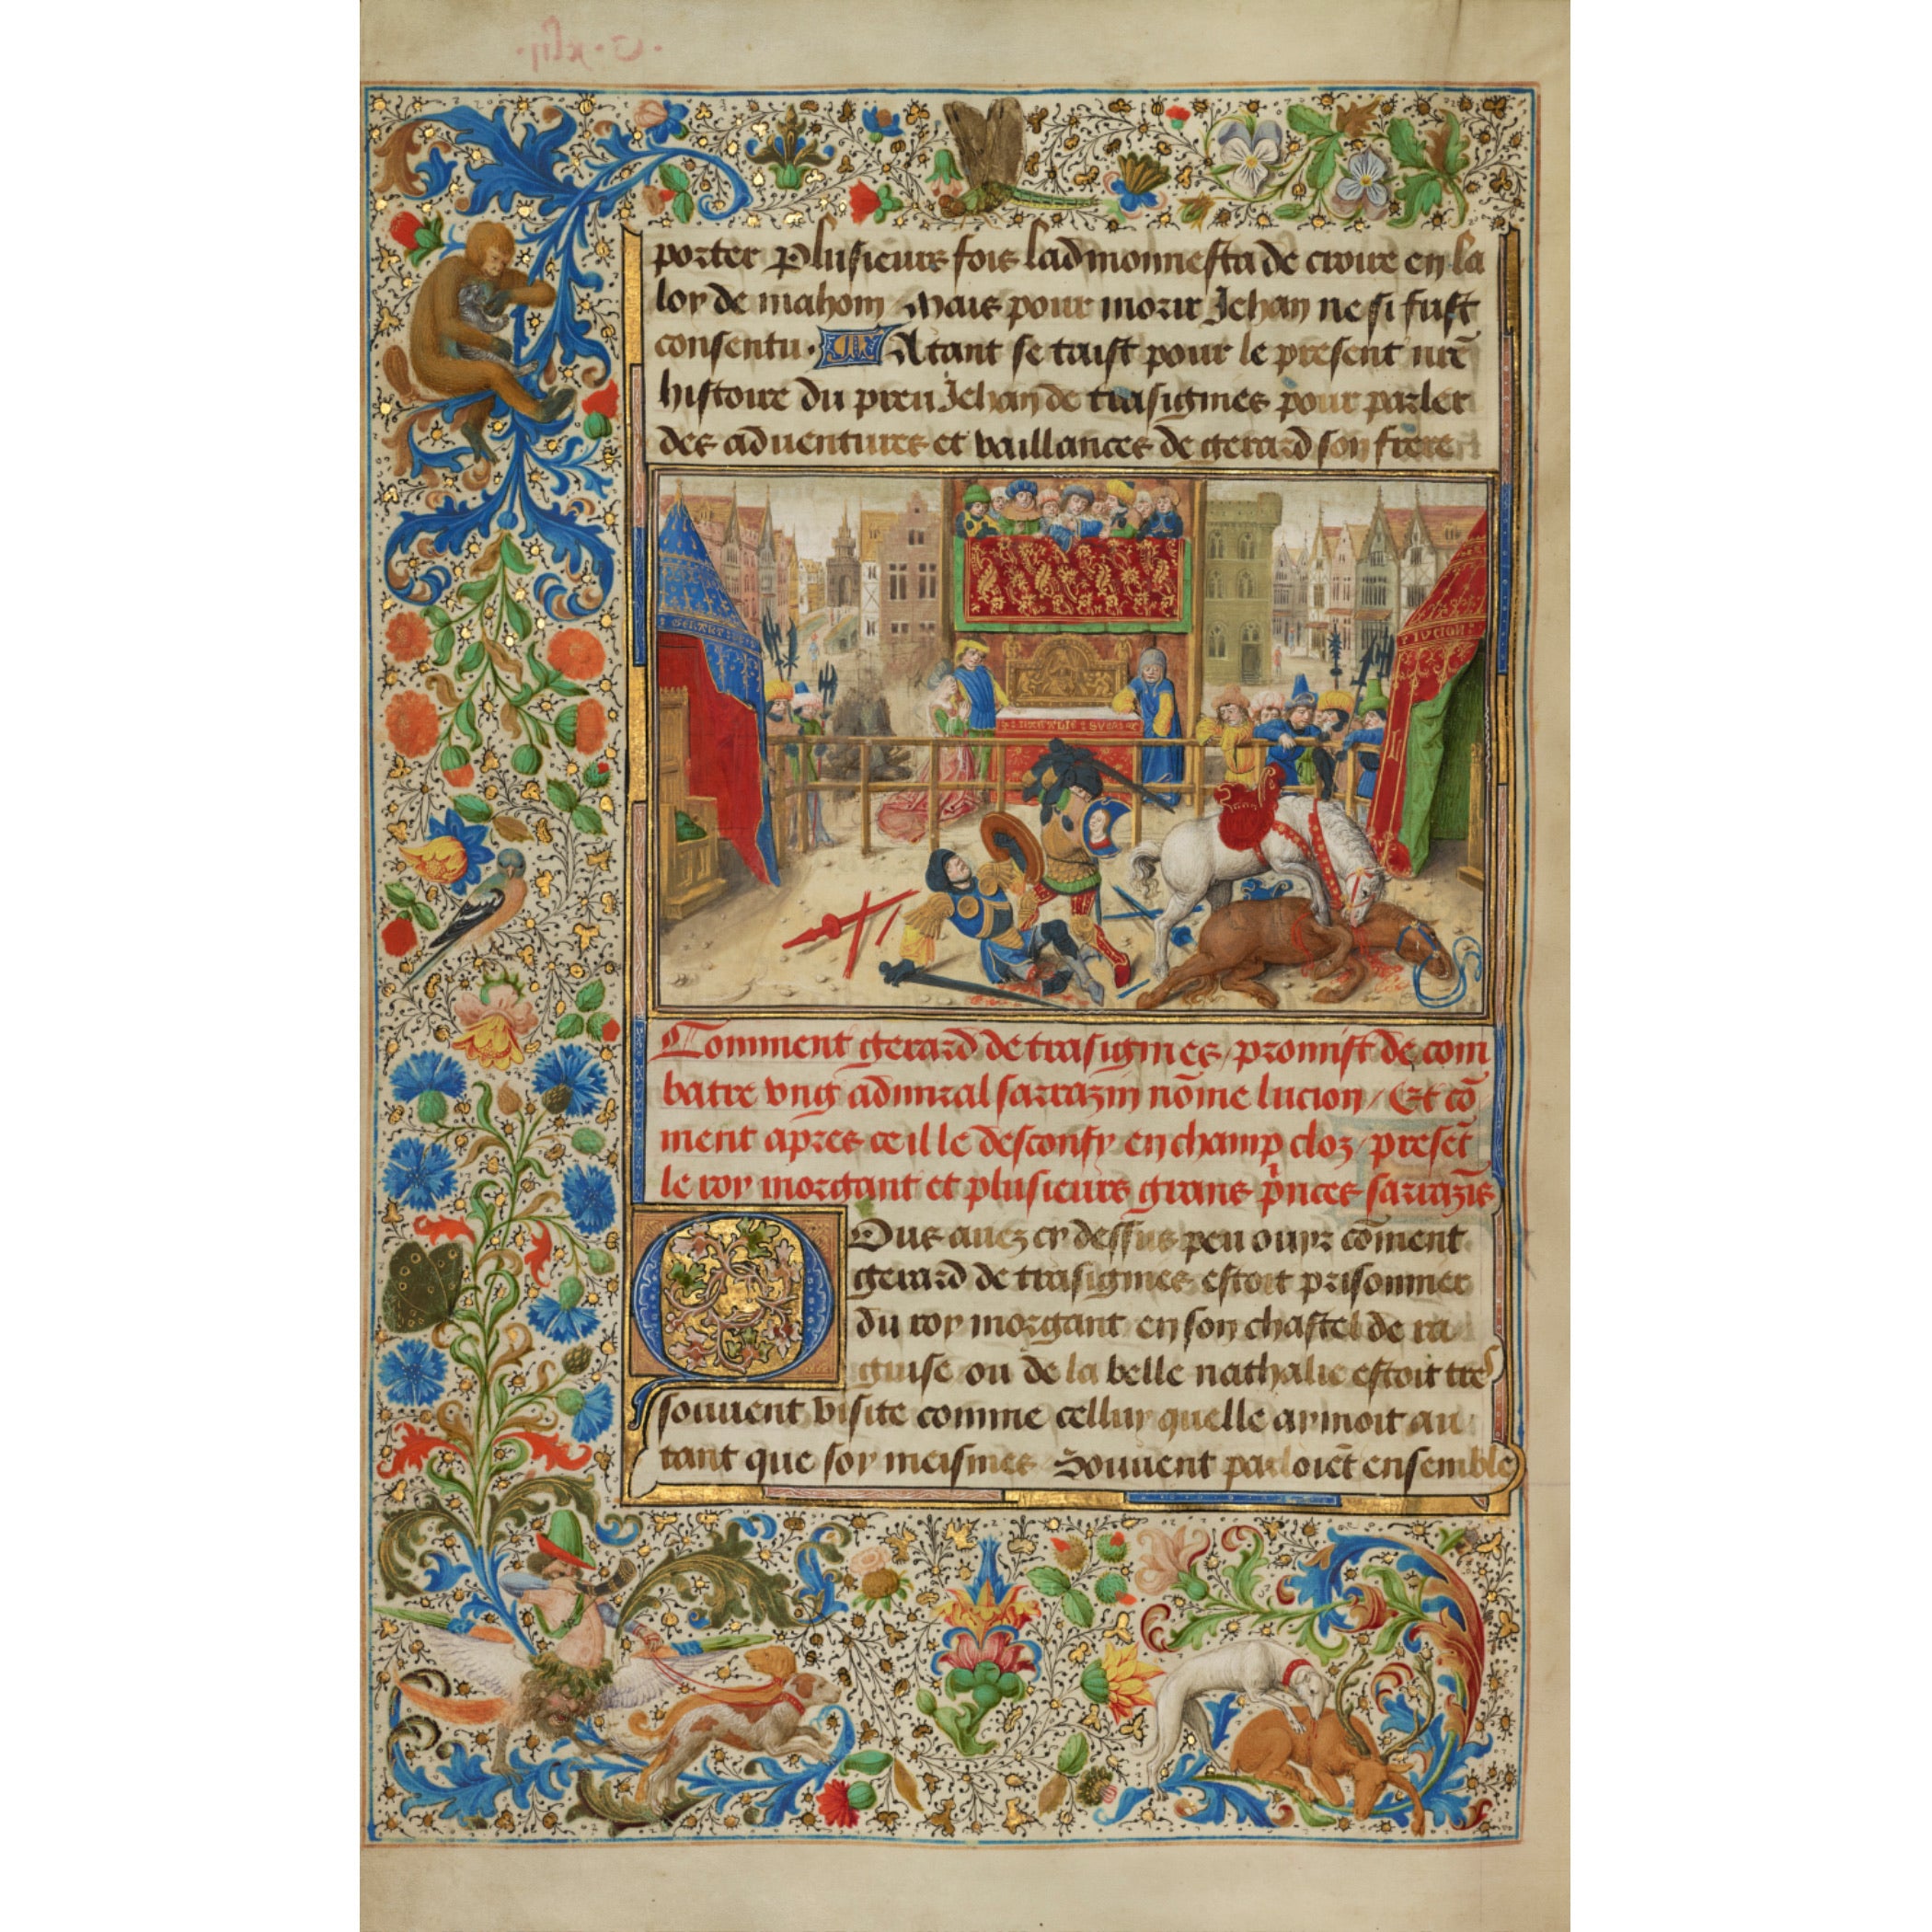 porter Plusieurs fois ladmonnesta de croire en la
loy de mahom / Mais pour morir Jehan ne si fust
consentu · Atant se taist pour le present nr̄e
histoire du preu Jehan de trasignies pour parler
des aduentures et vaillances de gerard son frere
GERART
LUCION
NATALIE
Comment gerard de trasignies / promist de com
batre vng admiral sarrazin nōme lucion / Et cō
ment apres ce il le desconfy en champ cloz / presēt
le roy morgant et plusieurs grans p̄nces sarrazīs
Ous auez cy dessus peu ouyr cōment
gerard de trasignies estoit prisonnier
du roy morgant en son chastel de ra
guise ou de la belle nathalie estoit tres
souuent visite comme celluy quelle aymoit au
tant que soy meismes Souuent parloiēt ensemble